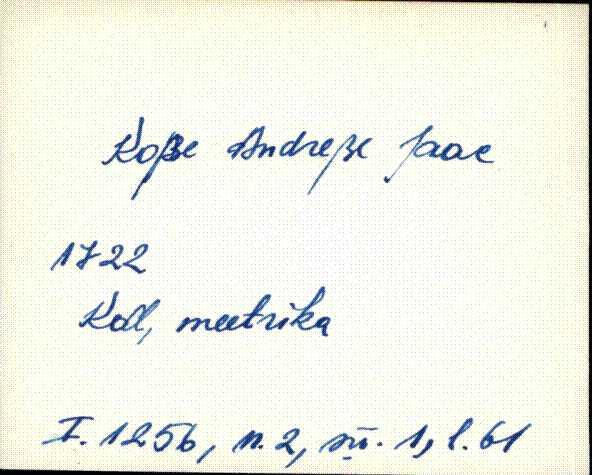 Koppe Andreße Jaae
1722
Koll, meetrika
I. 1256, n. 2, sü. 1, l. 61